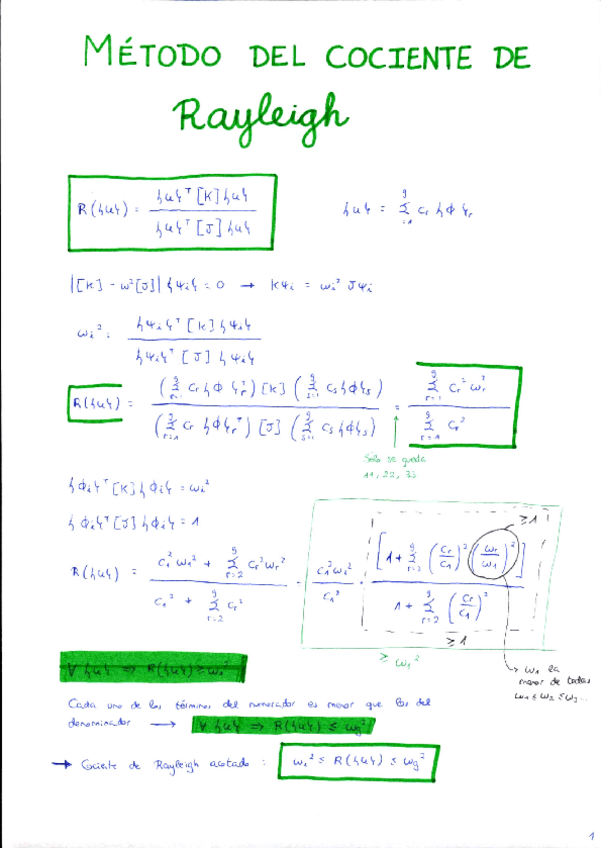 MÉTODO DEL COCIENTE DE
Rayleigh
R({u}) = {u}ᵀ [K] {u} / {u}ᵀ [J] {u}
{u} = Σ cr {ϕ}r
|[K] - ω²[J]| {ψi} = 0 → Kψi = ωi² Jψi
ωi² = {ψi}ᵀ [K] {ψi} / {ψi}ᵀ [J] {ψi}
R({u}) = (Σ^g_r=1 cr {ϕ}rᵀ) [K] (Σ^g_s=1 cs {ϕ}s) / (Σ^g_r=1 cr {ϕ}rᵀ) [J] (Σ^g_s=1 cs {ϕ}s) = Σ^g_r=1 cr² ωr² / Σ^g_r=1 cr²
Sólo se queda
11, 22, 33
{ϕi}ᵀ [K] {ϕi} = ωi²
{ϕi}ᵀ [J] {ϕi} = 1
≥1
R({u}) = c1² ω1² + Σ^g_r=2 cr² ωr² / c1² + Σ^g_r=2 cr² = c1² ω1² / c1² · [1 + Σ^g (cr/c1)² (ωr/ω1)²] / 1 + Σ^g_r=2 (cr/c1)²
≥1
≥ ω1²
ω1 la
menor de todas
ω1 ≤ ω2 ≤ ω3...
∀ {u} ⇒ R({u}) ≥ ω1²
Cada uno de los términos del numerador es menor que los del
denominador → ∀ {u} ⇒ R({u}) ≤ ωg²
→ Cociente de Rayleigh acotado : ω1² ≤ R({u}) ≤ ωg²
1